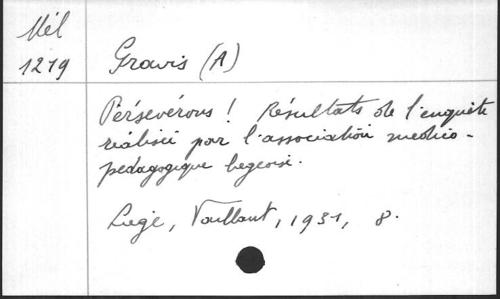 Mél
1219
Gravis (A)
Persévérons ! Résultats de l'enquête
réalisée par l'association medico-
pedagogique liegeoise.
Liege, Vaillant, 1931, 8.